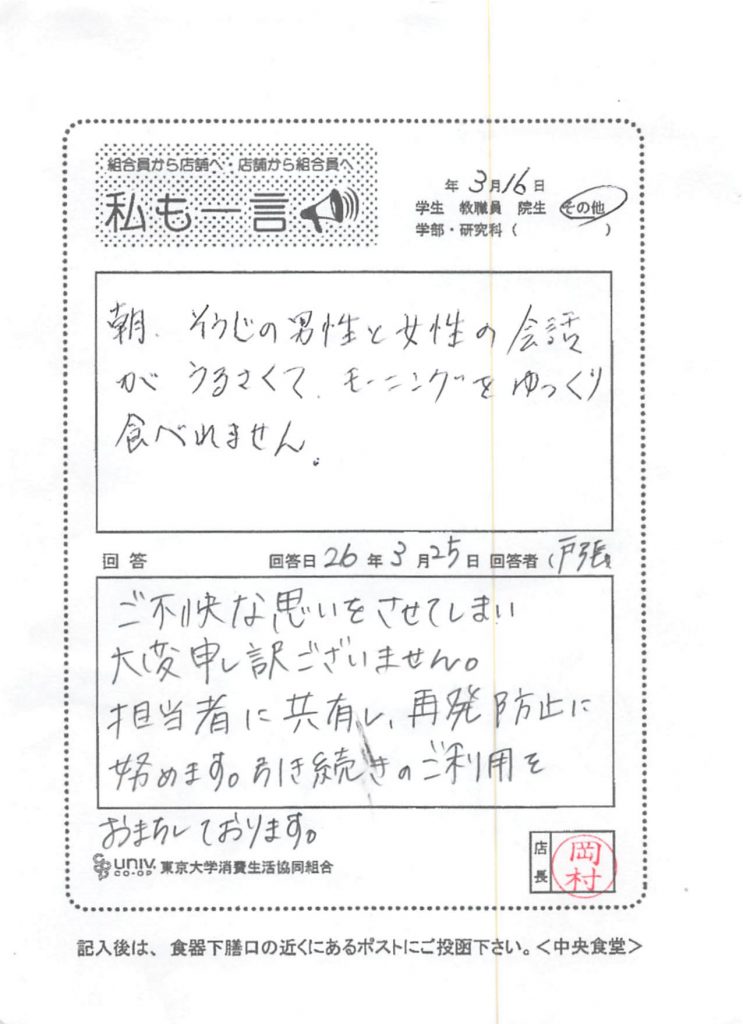 組合員から店舗へ・店舗から組合員へ
私も一言
年 3月16日
学生 教職員 院生 その他
学部・研究科（ ）
朝、そうじの男性と女性の会話
がうるさくて、モーニングをゆっくり
食べれません。
回答 回答日 26年3月25日 回答者（戸張）
ご不快な思いをさせてしまい
大変申し訳ございません。
担当者に共有し、再発防止に
努めます。引き続きのご利用を
おまちしております。
UNIV. CO-OP 東京大学消費生活協同組合
店長 岡村
記入後は、食器下膳口の近くにあるポストにご投函下さい。＜中央食堂＞